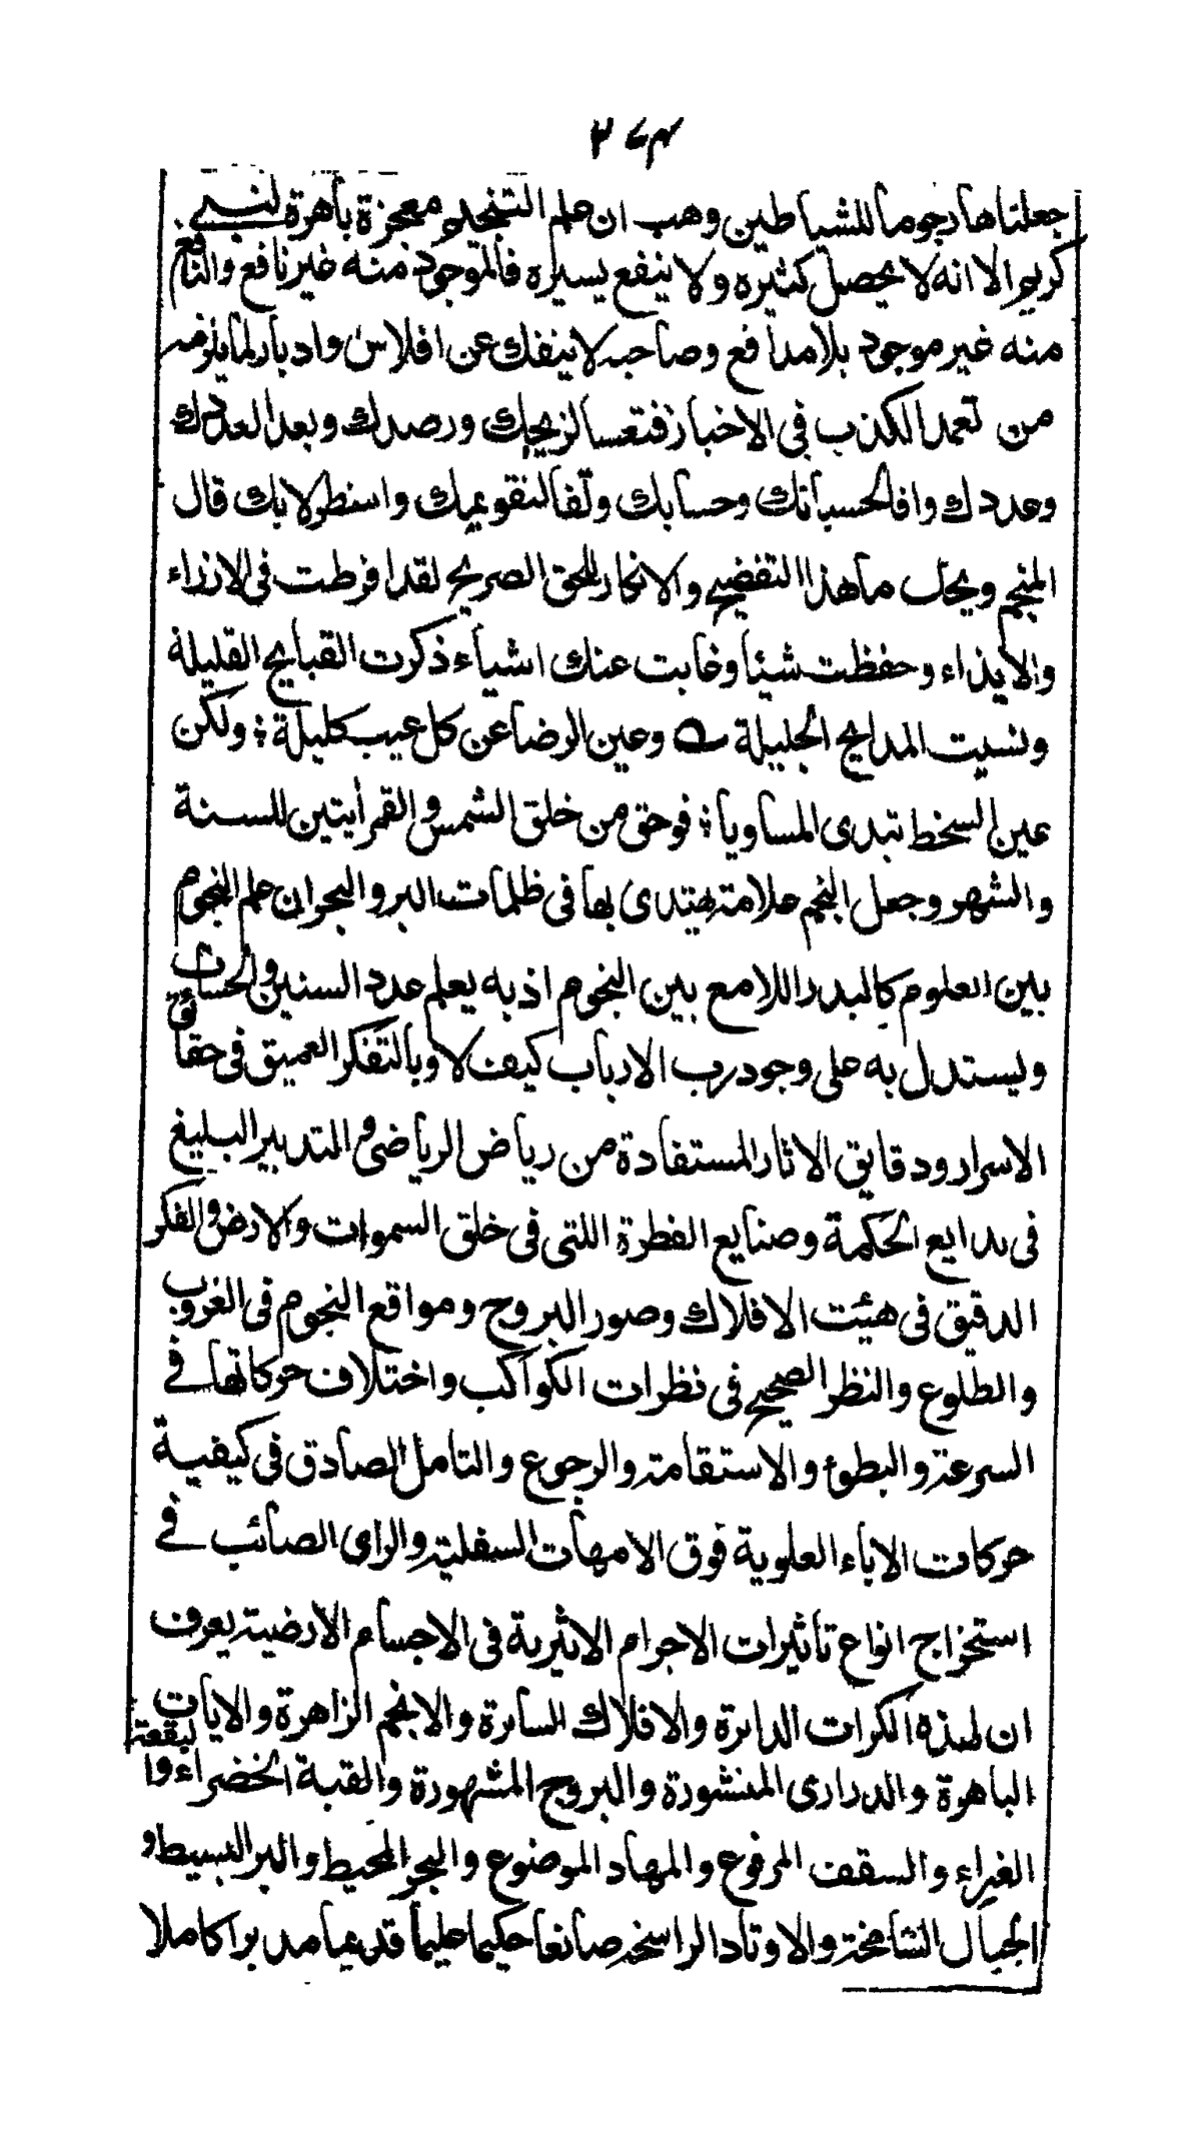 ٢٦٣
جعلناها رجوما للشياطين وهب ان علم التنجيم معجزة باهرة لنبي
كريم الا انه لا يحصل كثيره ولا ينفع يسيره فالموجود منه غير نافع والنافع
منه غير موجود بلا مدافع وصاحبه لا ينفك عن افلاس وادبار لما يلزمه
من تعمد الكذب في الاخبار فتعسا لزيجك ورصدك وبعدا لعدك
وعددك وافا لحسباناتك وحسابك وتفا لتقويمك واسطرلابك قال
المنجم ويحك ما هذا التفضيح والانكار للحق الصريح لقد افرطت في الازراء
والايذاء وحفظت شيئا وغابت عنك اشياء ذكرت القبايح القليلة
ونسيت المدايح الجليلة وعين الرضا عن كل عيب كليلة ؛ ولكن
عين السخط تبدى المساويا ؛ فوحق من خلق الشمس والقمر أيتين للسنة
والشهر وجعل النجم علامة يهتدى بها فى ظلمات البر والبحر ان علم النجوم
بين العلوم كالبدر اللامع بين النجوم اذ به يعلم عدد السنين والحساب
ويستدل به على وجود رب الارباب كيف لا وبالتفكر العميق فى حقائق
الاسرار ودقايق الاثار المستفادة من رياض الرياضى والتدبير البليغ
فى بدايع الحكمة وصنايع الفطرة اللتى فى خلق السموات والارض والفكر
الدقيق فى هيئت الافلاك وصور البروج ومواقع النجوم فى الغروب
والطلوع والنظر الصحيح فى نظرات الكواكب واختلاف حركاتها في
السرعة والبطوء والاستقامة والرجوع والتامل الصادق فى كيفية
حركات الاباء العلوية فوق الامهات السفلية والراى الصائب في
استخراج انواع تأثيرات الاجرام الاثيرية فى الاجسام الارضية يعرف
ان لهذه الكرات الدايرة والافلاك السايرة والانجم الزاهرة والايات
الباهرة والدرارى المنثورة والبروج المشهورة والقبة الخضراء والبقعة
الغبراء والسقف المرفوع والمهاد الموضوع والبحر المحيط والبر البسيط و
الجبال الشامخة والاوتاد الراسخة صانعا حكيما عليما قديما مدبرا كاملا